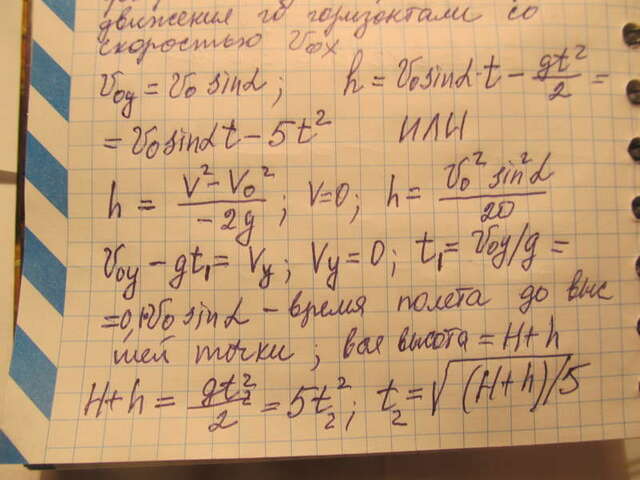 движения по горизонтали со
скоростью V₀ₓ
V₀y = V₀ sinα; h = V₀sinα·t − gt²/2 =
= V₀sinαt − 5t² ИЛИ
h = (V² − V₀²)/(−2g); V=0; h = V₀² sin²α/20
V₀y − gt₁ = Vy; Vy = 0; t₁ = V₀y/g =
=0,1V₀ sinα – время полета до выс
шей точки; вся высота = H+h
H+h = gt₂²/2 = 5t₂²; t₂ = √(H+h)/5